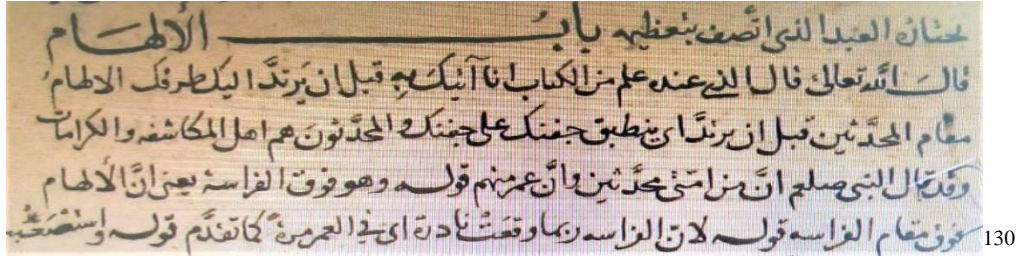 بحثان العبد الذى اتّصف بتعظيمه بابُ الألهام
قالَ الله تعالى قال الذى عنده علم من الكتاب انا آتيكَ بِهِ قبل ان يَرتدَّ اليك طرفك الالهامُ
مقام المحدَّثين قبل ان يرتدَّ اى ينطبق جفنك على جفنك والمحدَّثونَ هم اهل المكاشفه والكرامات
وقد قال النبى صلعم انَّ من امتى محدَّثين وانَّ عمر منهم قوله وهو فوق الفراسة يعنى انَّ الألهام
فوق مقام الفراسه قوله لانّ الفراسه ربما وقعَتْ نادرة اى فى العمر مرةً كما تقدَّم قوله واستصعَبْ
130